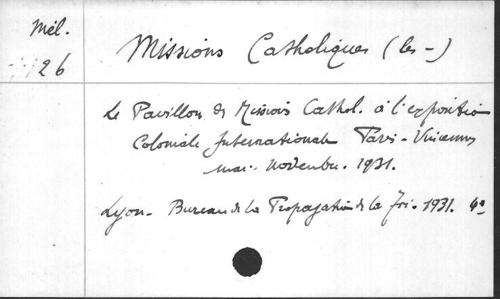 Mél.
26
Missions Catholiques (les -)
Le Pavillon des Missions Cathol. à l'exposition
Coloniale Internationale Paris - Vincennes
mai - novembre. 1931.
Lyon - Bureau de la Propagation de la Foi - 1931. 4º